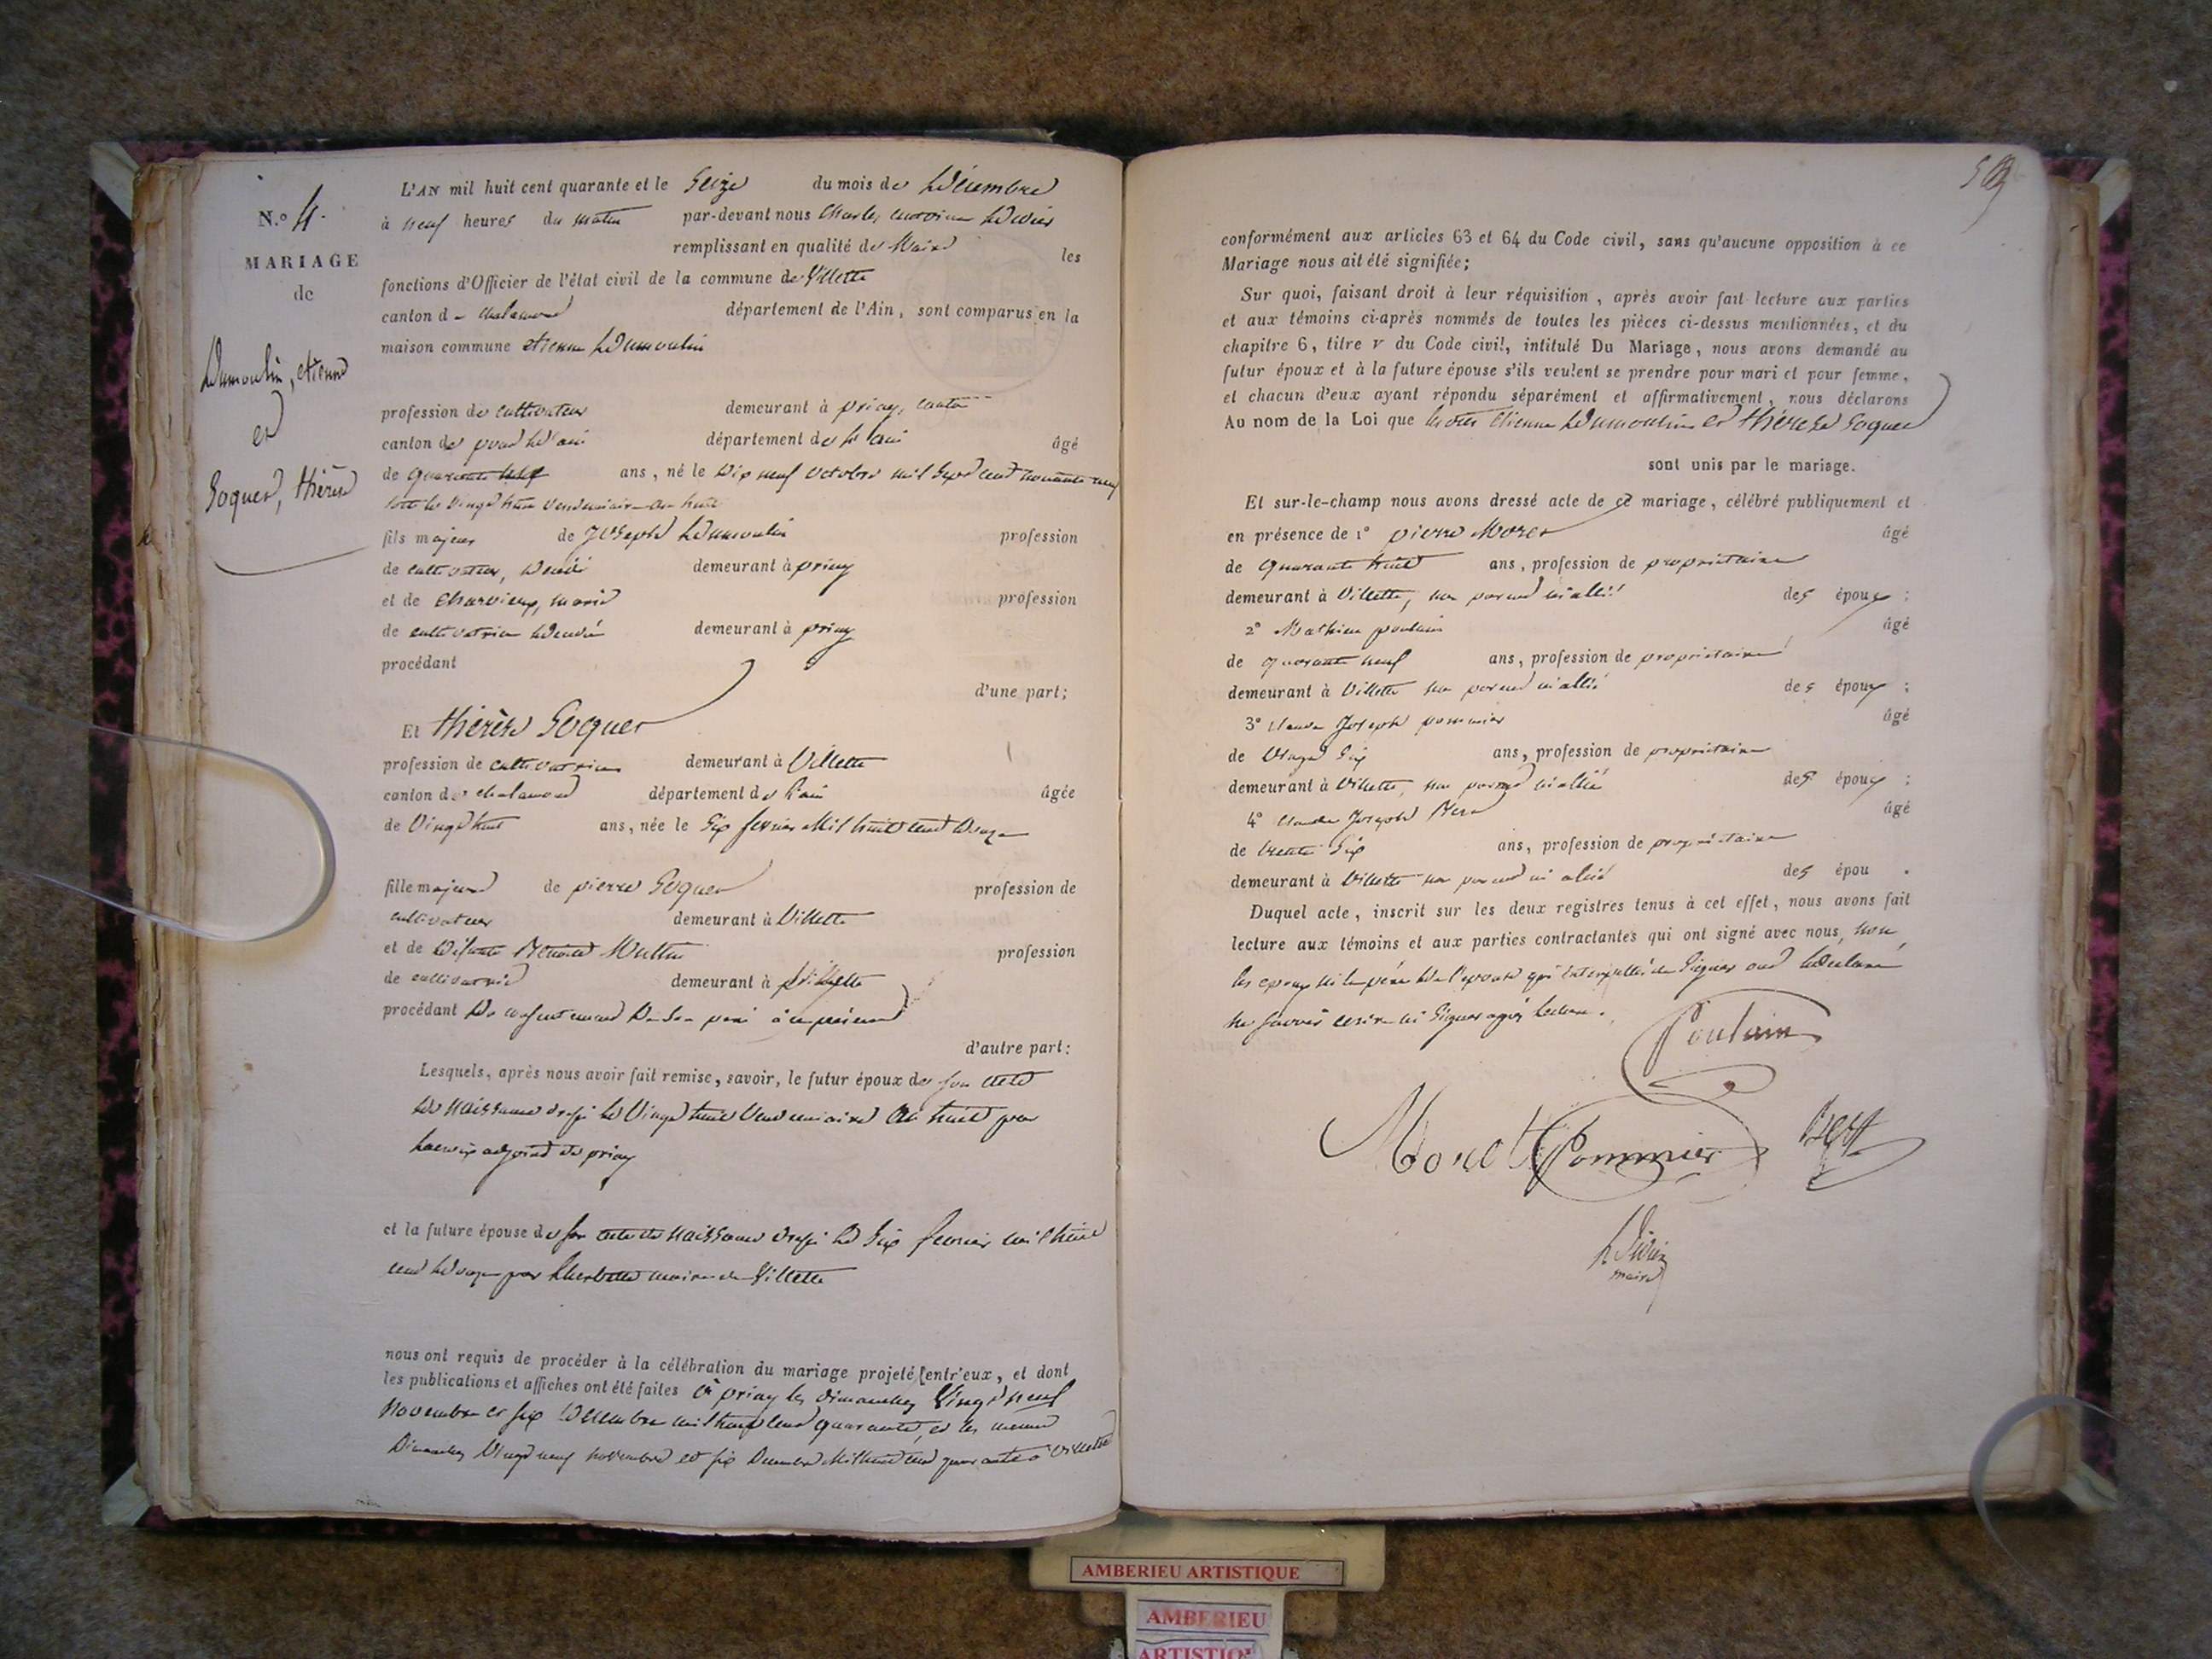 N.º 4.
MARIAGE
de
Dumoulin, etienne
et
Goquet, thérèse
L'AN mil huit cent quarante et le Seize du mois de Décembre
à neuf heures du matin par-devant nous Charles antoine
remplissant en qualité de Maire les
fonctions d'Officier de l'état civil de la commune de Villette
canton de chalamont département de l'Ain, sont comparus en la
maison commune etienne Dumoulin
profession de cultivateur demeurant à priay, canton
canton de pont d'ain département de l'ain âgé
de quarante ans, né le dix neuf octobre mil sept cent nonante neuf
vingt huit vendemiaire an huit
fils majeur de Joseph Dumoulin profession
de cultivateur, décédé demeurant à priay
et de Charvieux, marie profession
de cultivatrice décédée demeurant à priay
procédant
d'une part;
Et thérèse Goquet
profession de cultivatrice demeurant à Villette
canton de chalamont département de l'ain âgée
de Vingt huit ans, née le Six fevrier Mil huit cent douze
fille majeure de pierre Goquet profession de
cultivateur demeurant à Villette
et de défunte profession
de cultivatrice demeurant à Villette
procédant du consentement de son père à ce présent
d'autre part:
Lesquels, après nous avoir fait remise, savoir, le futur époux de son acte
de Naissance dressé le Vingt huit Vendemiaire an huit par
adjoint de priay
et la future épouse de son acte de Naissance dressé le Six fevrier mil huit
cent douze par maire de Villette
nous ont requis de procéder à la célébration du mariage projeté entr'eux, et dont
les publications et affiches ont été faites à priay les dimanches Vingt neuf
novembre et six Décembre mil huit cent quarante, et les memes
Dimanches Vingt neuf novembre et six Decembre Mil huit cent quarante à Villette
conformément aux articles 63 et 64 du Code civil, sans qu'aucune opposition à ce
Mariage nous ait été signifiée;
Sur quoi, faisant droit à leur réquisition, après avoir fait lecture aux parties
et aux témoins ci-après nommés de toutes les pièces ci-dessus mentionnées, et du
chapitre 6, titre v du Code civil, intitulé Du Mariage, nous avons demandé au
futur époux et à la future épouse s'ils veulent se prendre pour mari et pour femme,
et chacun d'eux ayant répondu séparément et affirmativement, nous déclarons
Au nom de la Loi que les dits Etienne Dumoulin et thérèse Goquet
sont unis par le mariage.
Et sur-le-champ nous avons dressé acte de ce mariage, célébré publiquement et
en présence de 1º pierre Moret âgé
de quarante huit ans, profession de propriétaire
demeurant à Villette, non parent ni allié des époux ;
2º Mathieu poulain âgé
de quarante neuf ans, profession de propriétaire
demeurant à Villette non parent ni allié des époux ;
3º Claude Joseph pommier âgé
de Vingt Six ans, profession de propriétaire
demeurant à Villette, non parent ni allié des époux ;
4º Claude Joseph âgé
de trente Six ans, profession de propriétaire
demeurant à Villette non parent ni allié des épou .
Duquel acte, inscrit sur les deux registres tenus à cet effet, nous avons fait
lecture aux témoins et aux parties contractantes qui ont signé avec nous, non
les epoux ni le père de l'epouse qui interpellés de Signer ont déclaré
ne savoir ecrire ni Signer après lecture.
Poulain
Moret Pommier
maire
AMBERIEU ARTISTIQUE
AMBERIEU